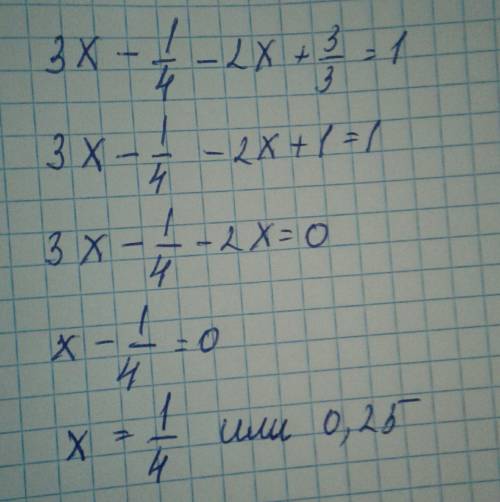 3x - 1/4 - 2x + 3/3 = 1
3x - 1/4 - 2x + 1 = 1
3x - 1/4 - 2x = 0
x - 1/4 = 0
x = 1/4 или 0,25